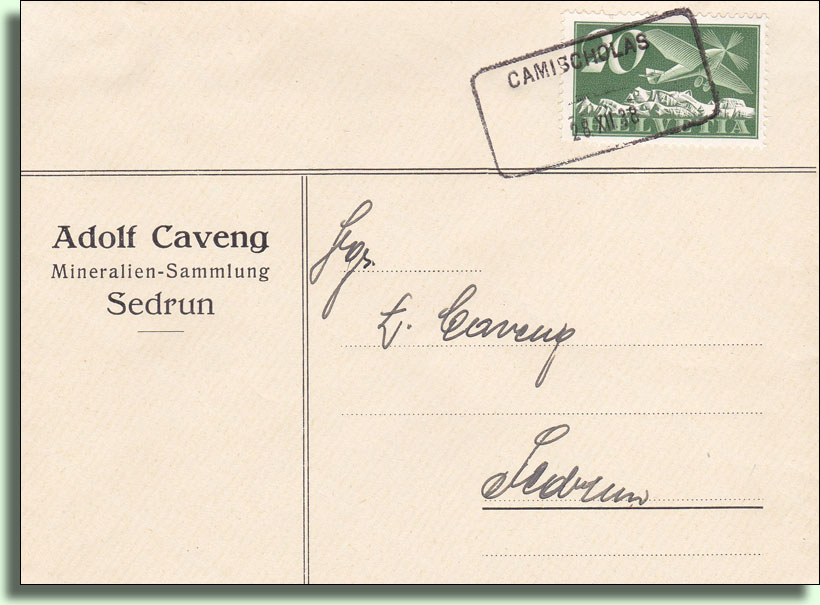 20
CAMISCHOLAS
28 XII 38
HELVETIA
Adolf Caveng
Mineralien-Sammlung
Sedrun
Caveng
Sedrun